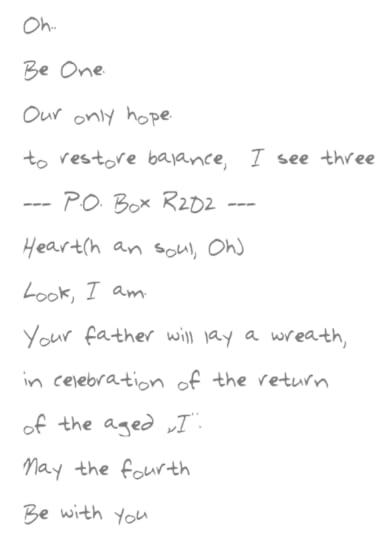 Oh..
Be One.
Our only hope.
to restore balance, I see three
--- P.O. Box R2D2 ---
Heart(h an soul, Oh)
Look, I am.
Your father will lay a wreath,
in celebration of the return
of the aged „I“.
May the fourth
Be with you